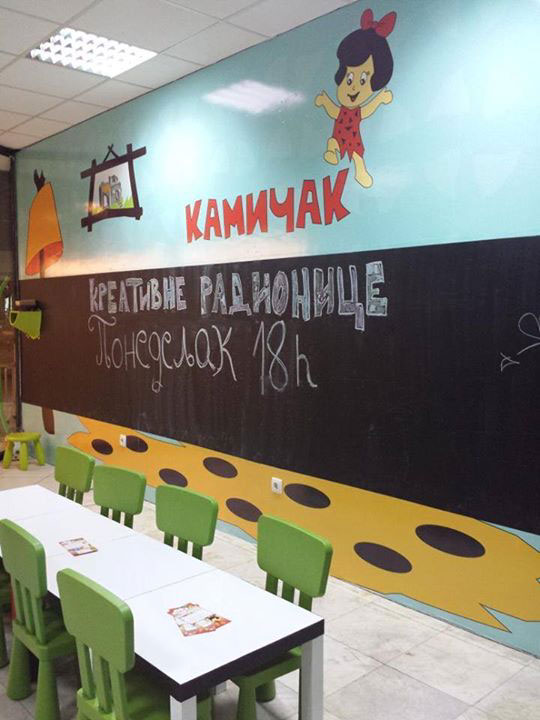 КАМИЧАК
КРЕАТИВНЕ РАДИОНИЦЕ
Понедељак 18h